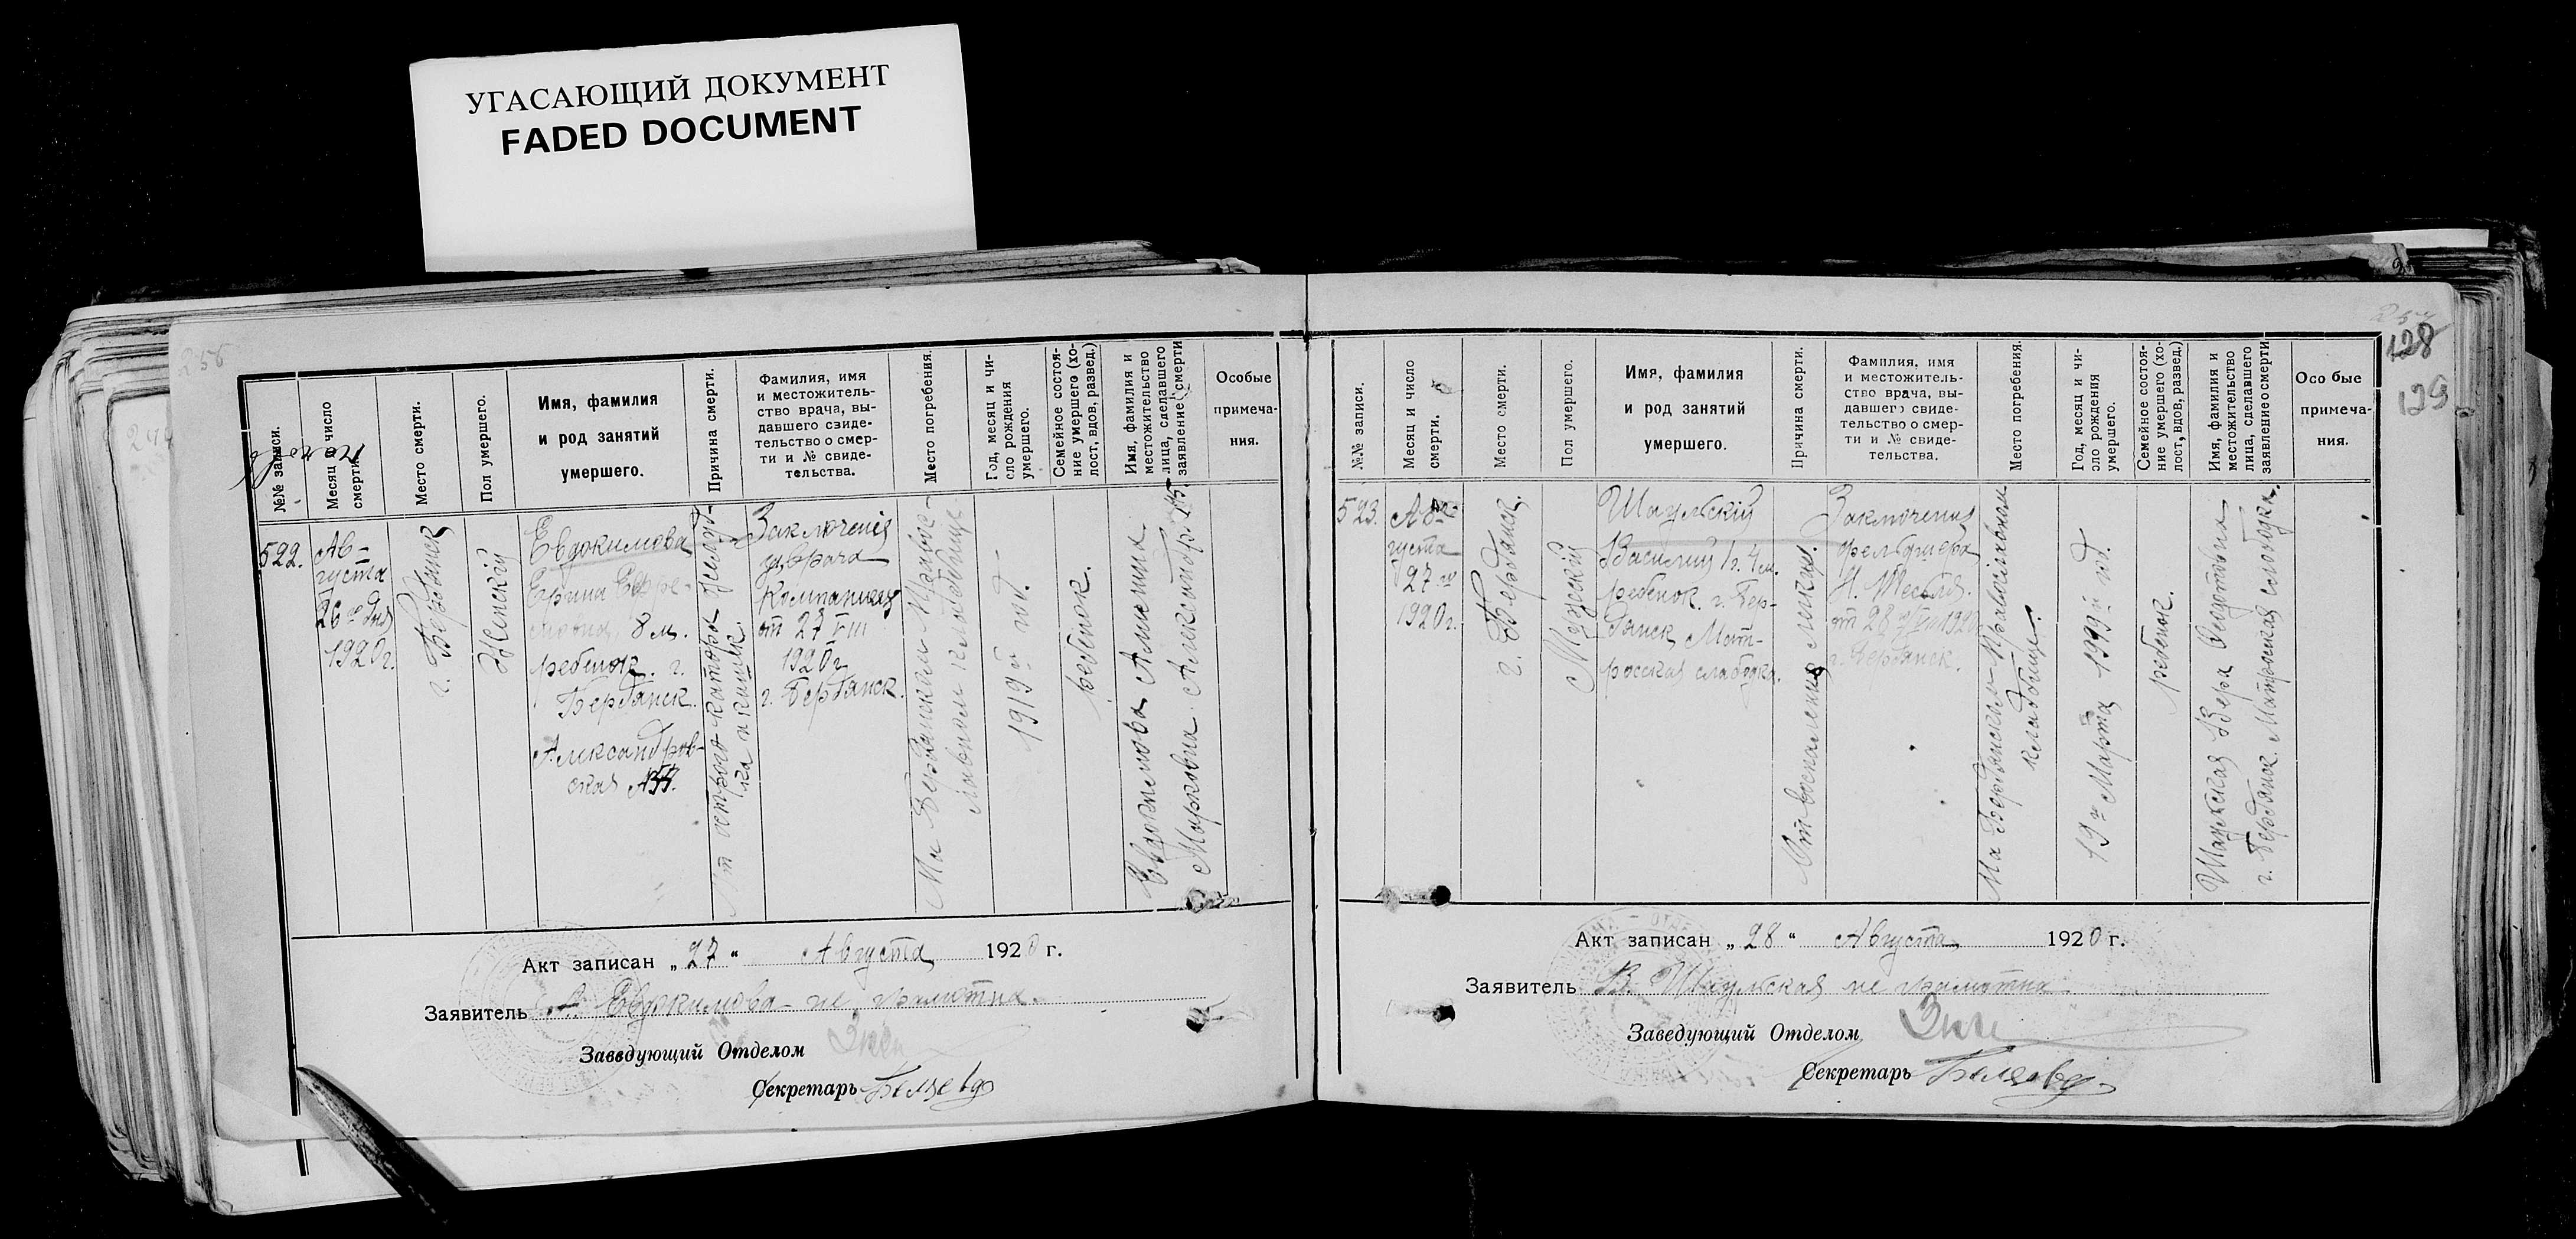 УГАСАЮЩИЙ ДОКУМЕНТ
FADED DOCUMENT
256
№№ записи.
Месяц и число
смерти.
Место смерти.
Пол умершего.
Имя, фамилия
и род занятий
умершего.
Причина смерти.
Фамилия, имя
и местожитель-
ство врача, вы-
давшего свиде-
тельство о смер-
ти и № свиде-
тельства.
Место погребения.
Год, месяц и чи-
сло рождения
умершего.
Семейное состоя-
ние умершего (хо-
лост, вдов, развед.)
Имя, фамилия и
местожительство
лица, сделавшего
заявление о смерти
Особые
примеча-
ния.
522.
Ав-
густа
26го дня
1920 г.
г. Бердянск
Женский
Евдокимова
8 м.
ребенок. г.
Бердянск.
Александров-
ская
От острого катарра желуд-
ка и кишек.
Заключения
врача
от 27 VIII
1920 г.
г. Бердянск.
На Бердянском Право-
славном кладбище
1919й год.
ребенок.
Евдокимова
Марковна Александр.
Акт записан „27“ Августа 1920 г.
Заявитель А. Евдокимова - не грамотна.
Заведующий Отделом
Секретарь
128
129
№№ записи.
Месяц и число
смерти.
Место смерти.
Пол умершего.
Имя, фамилия
и род занятий
умершего.
Причина смерти.
Фамилия, имя
и местожитель-
ство врача, вы-
давшего свиде-
тельство о смер-
ти и № свиде-
тельства.
Место погребения.
Год, месяц и чи-
сло рождения
умершего.
Семейное состоя-
ние умершего (хо-
лост, вдов, развед.)
Имя, фамилия и
местожительство
лица, сделавшего
заявление о смерти
Особые
примеча-
ния.
523.
Ав-
густа
27го
1920 г.
г. Бердянск.
Мужский
Шаульский
Василий 1 г. 4 м.
ребенок. г. Бер-
дянск Мат-
росская слабодка.
От воспаления легких.
Заключения
фельдшера
от 28 VIII 1920
г. Бердянск.
На Бердянском Православном
кладбище.
19го Марта 1919й год.
ребенок.
Шаульская Вера Федотовна
г. Бердянск. Матросская слободка.
Акт записан „28“ Августа 1920 г.
Заявитель В. Шаульская не грамотна
Заведующий Отделом
Секретарь